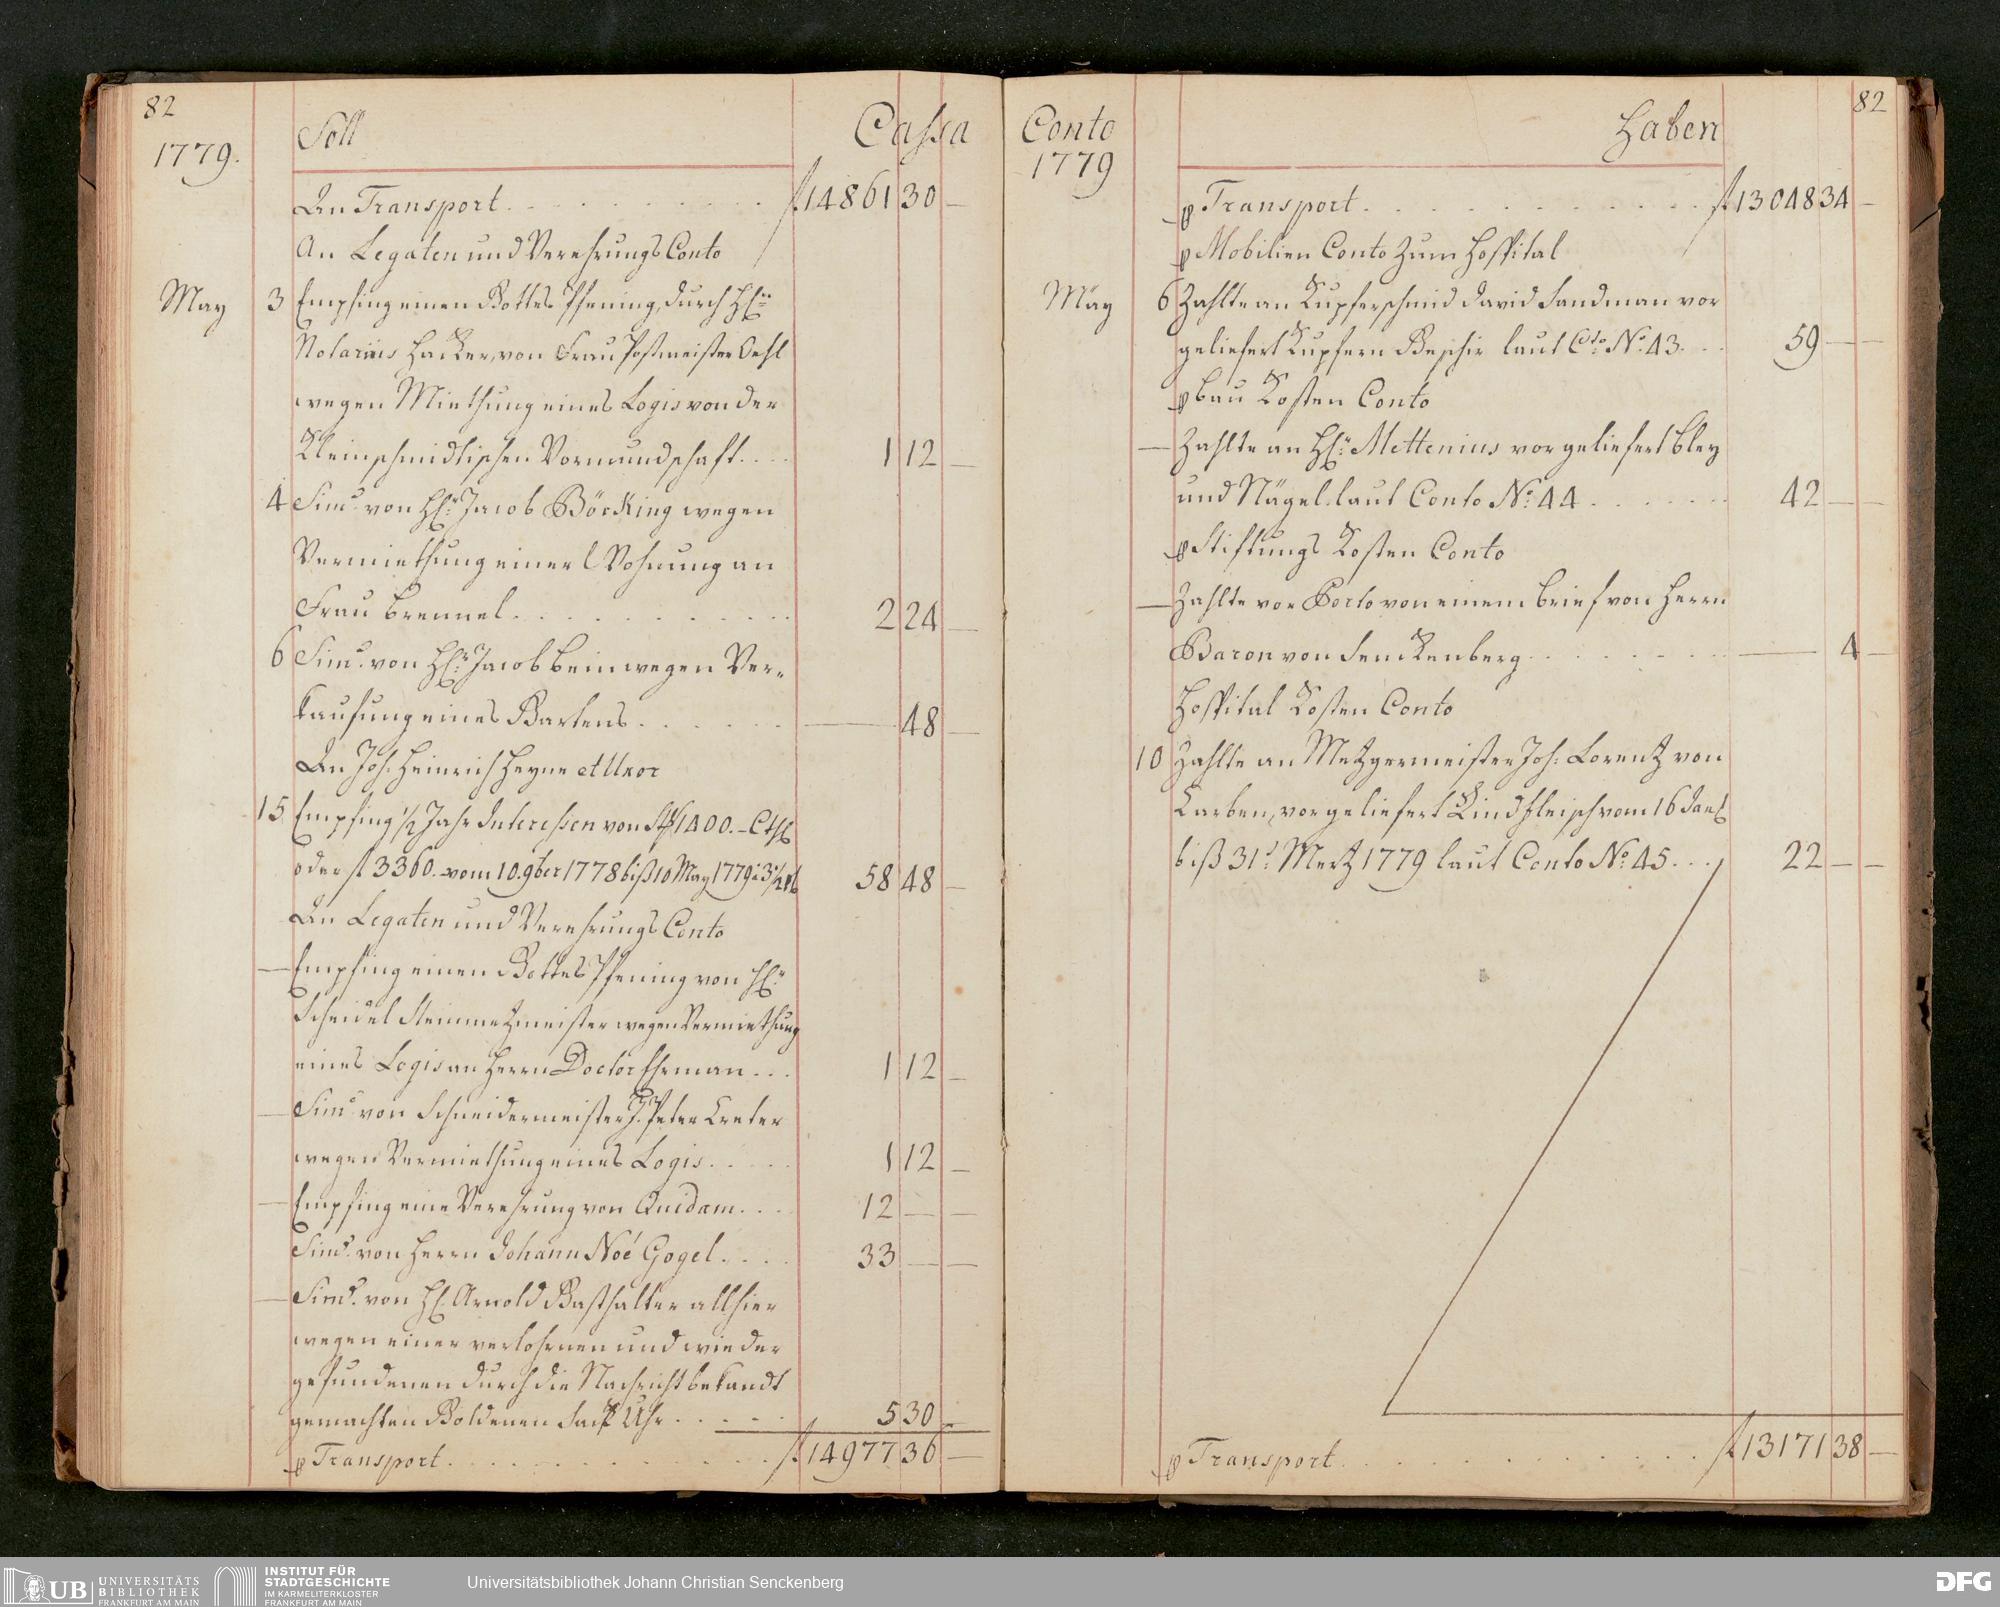 82
1779.
Soll
Cassa
An Transport . . . . . . . . . . f 14861 30 —
An Legaten und Verehrungs Conto
May 3 Empfing einen Gottes Pfening, durch H:
Notarius Hacker, von Frau Postmeister Oehl
wegen Miethung eines Logis von der
Kleinschmidtischen Vormundschaft . . . . 1 12 —
4 Simd. von H: Jacob Böcking wegen
Vermiethung einer Wohnung an
Frau Brennel . . . . . . . . . . 2 24 —
6 Simd. von H: Jacob Bein wegen Ver-
kaufung eines Gartens . . . . . . — 48 —
An Joh. Heinrich Heyne et Uxor
15 Empfing 1/2 Jahr Interessen von 1400. —
oder f 3360. vom 10. 9ber 1778 biß 10 May 1779 à 3 1/2 58 48 —
An Legaten und Verehrungs Conto
— Empfing einen Gottes Pfening von H:
Scheidel Steinmetzmeister wegen Vermiethung
eines Logis an Herrn Doctor Ehrman . . . 1 12 —
— Simd. von Schneidermeister J. Peter Creter
wegen Vermiethung eines Logis . . . . . 1 12 —
— Empfing eine Verehrung von Quidam . . . 12 — —
Simd. von Herrn Johann Noé Gogel . . . . 33 — —
— Simd. von H. Arnold Gasthalter allhier
wegen einer verlohrnen und wieder
gefundenen durch die Nachricht bekandt
gemachten Goldenen Sack Uhr . . . . . 5 30 —
p Transport . . . . . . . . . . . f 14977 36 —
Conto
1779
Haben
82
p Transport . . . . . . . . . . . f 13048 34 —
p Mobilien Conto zum Hospital
May 6 Zahlte an Kupferschmid David Sandman vor
geliefert Kupfern Geschir laut Cto No. 43. . . 59 — —
p Bau Kosten Conto
— Zahlte an H: Mettenius vor geliefert Bley
und Nägel laut Conto No. 44 . . . . . . 42 — —
p Stiftungs Kosten Conto
— Zahlte vor Porto von einem Brief von Herrn
Baron von Senckenberg . . . . . . . — 4 —
Hospital Kosten Conto
10 Zahlte an Metzgermeister Joh: Lorentz von
Carben, vor geliefert Rindfleisch vom 16 Jan
biß 31t. Mertz 1779 laut Conto No. 45 . . . 22 — —
p Transport . . . . . . . . . . . f 13171 38 —
UB UNIVERSITÄTS
BIBLIOTHEK
FRANKFURT AM MAIN
INSTITUT FÜR
STADTGESCHICHTE
IM KARMELITERKLOSTER
FRANKFURT AM MAIN
Universitätsbibliothek Johann Christian Senckenberg
DFG